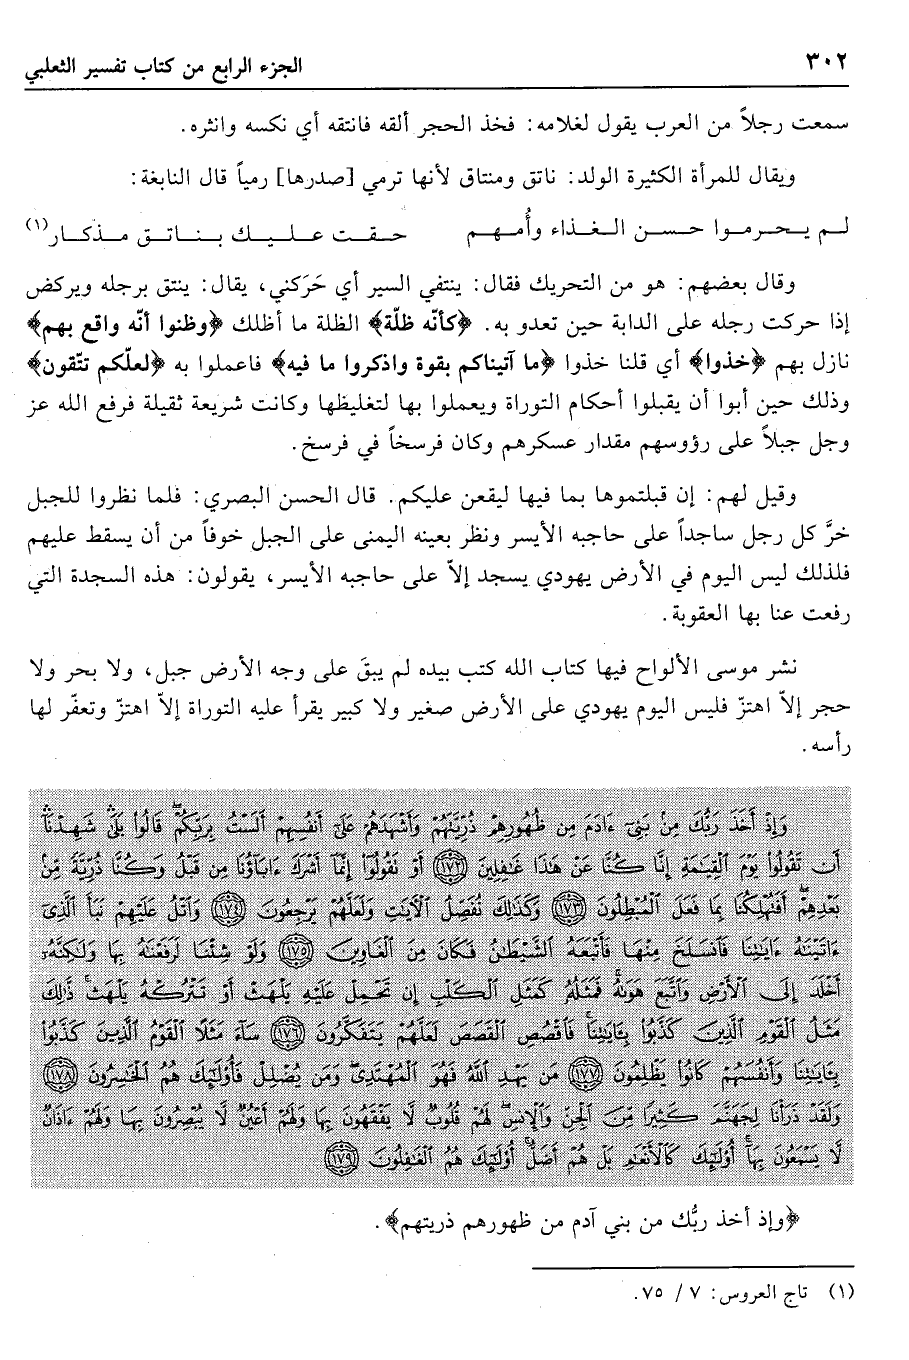 ٣٠٢
الجزء الرابع من كتاب تفسير الثعلبي
سمعت رجلاً من العرب يقول لغلامه: فخذ الحجر ألقه فانتقه أي نكسه وانثره.
ويقال للمرأة الكثيرة الولد: ناتق ومنتاق لأنها ترمي [صدرها] رمياً قال النابغة:
لم يحرموا حسن الغذاء وأُمهم حقت عليك بناتق مذكار(١)
وقال بعضهم: هو من التحريك فقال: ينتفي السير أي حَرَكني، يقال: ينتق برجله ويركض
إذا حركت رجله على الدابة حين تعدو به. ﴿كأنّه ظلّة﴾ الظلة ما أظلك ﴿وظنوا أنّه واقع بهم﴾
نازل بهم ﴿خذوا﴾ أي قلنا خذوا ﴿ما آتيناكم بقوة واذكروا ما فيه﴾ فاعملوا به ﴿لعلّكم تتّقون﴾
وذلك حين أبوا أن يقبلوا أحكام التوراة ويعملوا بها لتغليظها وكانت شريعة ثقيلة فرفع الله عز
وجل جبلاً على رؤوسهم مقدار عسكرهم وكان فرسخاً في فرسخ.
وقيل لهم: إن قبلتموها بما فيها ليقعن عليكم. قال الحسن البصري: فلما نظروا للجبل
خرَّ كل رجل ساجداً على حاجبه الأيسر ونظر بعينه اليمنى على الجبل خوفاً من أن يسقط عليهم
فلذلك ليس اليوم في الأرض يهودي يسجد إلاّ على حاجبه الأيسر، يقولون: هذه السجدة التي
رفعت عنا بها العقوبة.
نشر موسى الألواح فيها كتاب الله كتب بيده لم يبقَ على وجه الأرض جبل، ولا بحر ولا
حجر إلاّ اهتزّ فليس اليوم يهودي على الأرض صغير ولا كبير يقرأ عليه التوراة إلاّ اهتزّ وتعفّر لها
رأسه.
وَإِذْ أَخَذَ رَبُّكَ مِنْ بَنِىٓ ءَادَمَ مِن ظُهُورِهِمْ ذُرِّيَّتَهُمْ وَأَشْهَدَهُمْ عَلَىٰٓ أَنفُسِهِمْ أَلَسْتُ بِرَبِّكُمْ ۖ قَالُوا۟ بَلَىٰ ۛ شَهِدْنَآ ۛ
أَن تَقُولُوا۟ يَوْمَ ٱلْقِيَٰمَةِ إِنَّا كُنَّا عَنْ هَٰذَا غَٰفِلِينَ ١٧٢ أَوْ نَقُولُوٓا۟ إِنَّمَآ أَشْرَكَ ءَابَآؤُنَا مِن قَبْلُ وَكُنَّا ذُرِّيَّةً مِّنۢ
بَعْدِهِمْ ۖ أَفَتُهْلِكُنَا بِمَا فَعَلَ ٱلْمُبْطِلُونَ ١٧٣ وَكَذَٰلِكَ نُفَصِّلُ ٱلْءَايَٰتِ وَلَعَلَّهُمْ يَرْجِعُونَ ١٧٤ وَٱتْلُ عَلَيْهِمْ نَبَأَ ٱلَّذِىٓ
ءَاتَيْنَٰهُ ءَايَٰتِنَا فَٱنسَلَخَ مِنْهَا فَأَتْبَعَهُ ٱلشَّيْطَٰنُ فَكَانَ مِنَ ٱلْغَاوِينَ ١٧٥ وَلَوْ شِئْنَا لَرَفَعْنَٰهُ بِهَا وَلَٰكِنَّهُۥٓ
أَخْلَدَ إِلَى ٱلْأَرْضِ وَٱتَّبَعَ هَوَىٰهُ ۚ فَمَثَلُهُۥ كَمَثَلِ ٱلْكَلْبِ إِن تَحْمِلْ عَلَيْهِ يَلْهَثْ أَوْ تَتْرُكْهُ يَلْهَث ۚ ذَّٰلِكَ
مَثَلُ ٱلْقَوْمِ ٱلَّذِينَ كَذَّبُوا۟ بِـَٔايَٰتِنَا ۚ فَٱقْصُصِ ٱلْقَصَصَ لَعَلَّهُمْ يَتَفَكَّرُونَ ١٧٦ سَآءَ مَثَلًا ٱلْقَوْمُ ٱلَّذِينَ كَذَّبُوا۟
بِـَٔايَٰتِنَا وَأَنفُسَهُمْ كَانُوا۟ يَظْلِمُونَ ١٧٧ مَن يَهْدِ ٱللَّهُ فَهُوَ ٱلْمُهْتَدِى ۖ وَمَن يُضْلِلْ فَأُو۟لَٰٓئِكَ هُمُ ٱلْخَٰسِرُونَ ١٧٨
وَلَقَدْ ذَرَأْنَا لِجَهَنَّمَ كَثِيرًا مِّنَ ٱلْجِنِّ وَٱلْإِنسِ ۖ لَهُمْ قُلُوبٌ لَّا يَفْقَهُونَ بِهَا وَلَهُمْ أَعْيُنٌ لَّا يُبْصِرُونَ بِهَا وَلَهُمْ ءَاذَانٌ
لَّا يَسْمَعُونَ بِهَآ ۚ أُو۟لَٰٓئِكَ كَٱلْأَنْعَٰمِ بَلْ هُمْ أَضَلُّ ۚ أُو۟لَٰٓئِكَ هُمُ ٱلْغَٰفِلُونَ ١٧٩
﴿وإذ أخذ ربُّك من بني آدم من ظهورهم ذريتهم﴾.
(١) تاج العروس: ٧ / ٧٥.